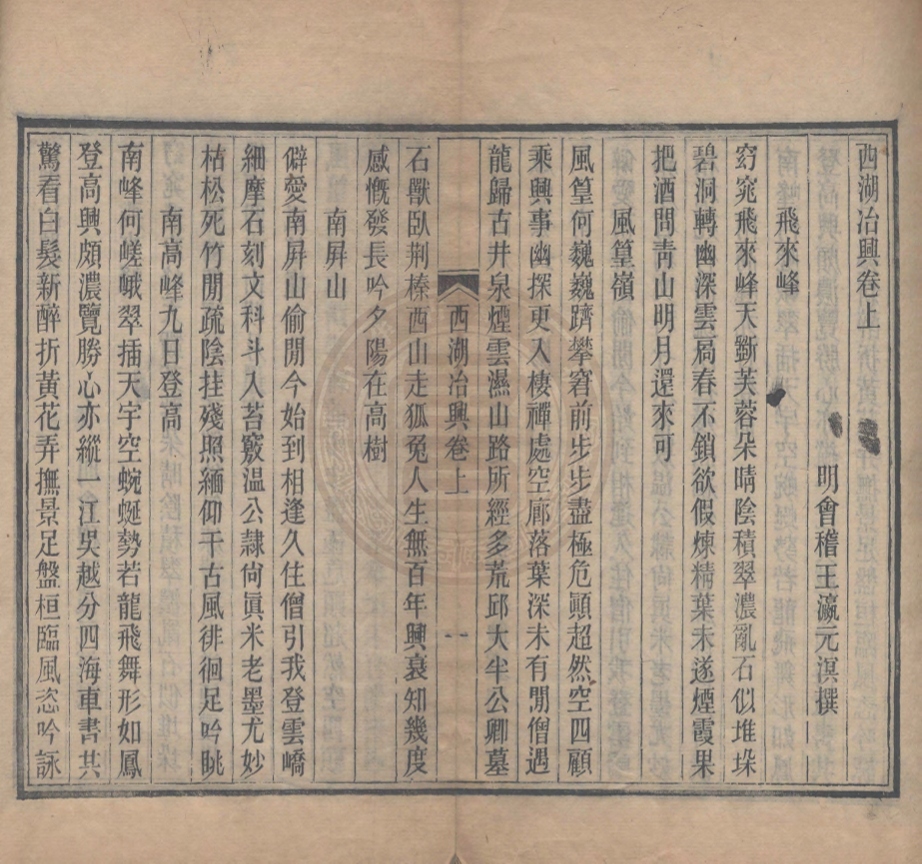 西湖冶興卷上
明會稽王瀛元溟撰
飛來峰
窈窕飛來峰天斲芙蓉朵晴陰積翠濃亂石似堆垛
碧洞轉幽深雲扃春不鎖欲假煉精葉未遂煙霞果
把酒問靑山明月還來可
風篁嶺
風篁何巍巍躋攀窘前步步盡極危巔超然空四顧
乘興事幽探更入棲禪處空廊落葉深未有閒僧遇
龍歸古井泉煙雲濕山路所經多荒邱大半公卿墓
西湖冶興卷上
一
石獸臥荆榛西山走狐兔人生無百年興衰知幾度
感慨發長吟夕陽在高樹
南屏山
僻愛南屏山偷閒今始到相逢久住僧引我登雲嶠
細摩石刻文科斗入苔竅溫公隷尙眞米老墨尤妙
枯松死竹閒疏陰挂殘照緬仰千古風徘徊足吟眺
南高峰九日登高
南峰何嵯峨翠插天宇空蜿蜒勢若龍飛舞形如鳳
登高興頗濃覽勝心亦縱一江吳越分四海車書共
驚看白髮新醉折黃花弄撫景足盤桓臨風恣吟詠